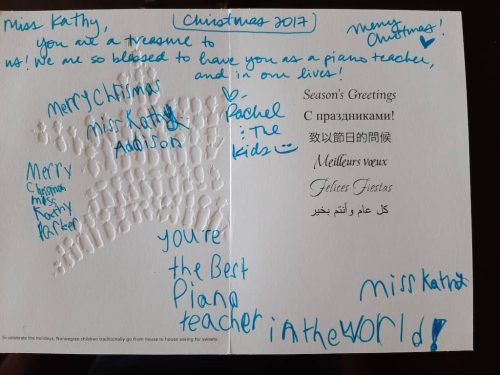 Miss Kathy,
Christmas 2017
Merry Christmas!
You are a treasure to
us! We are so blessed to have you as a piano teacher,
and in our lives!
Rachel
& The
Kids
Merry Christmas
Miss Kathy
Addison
Merry
Christmas
Miss
Kathy
Parker
Season's Greetings
С праздниками!
致以節日的問候
Meilleurs vœux
Felices Fiestas
كل عام وأنتم بخير
you're
the Best
Piano
teacher in the World!
miss Kathy
To celebrate the holidays, Norwegian children traditionally go from house to house asking for sweets.